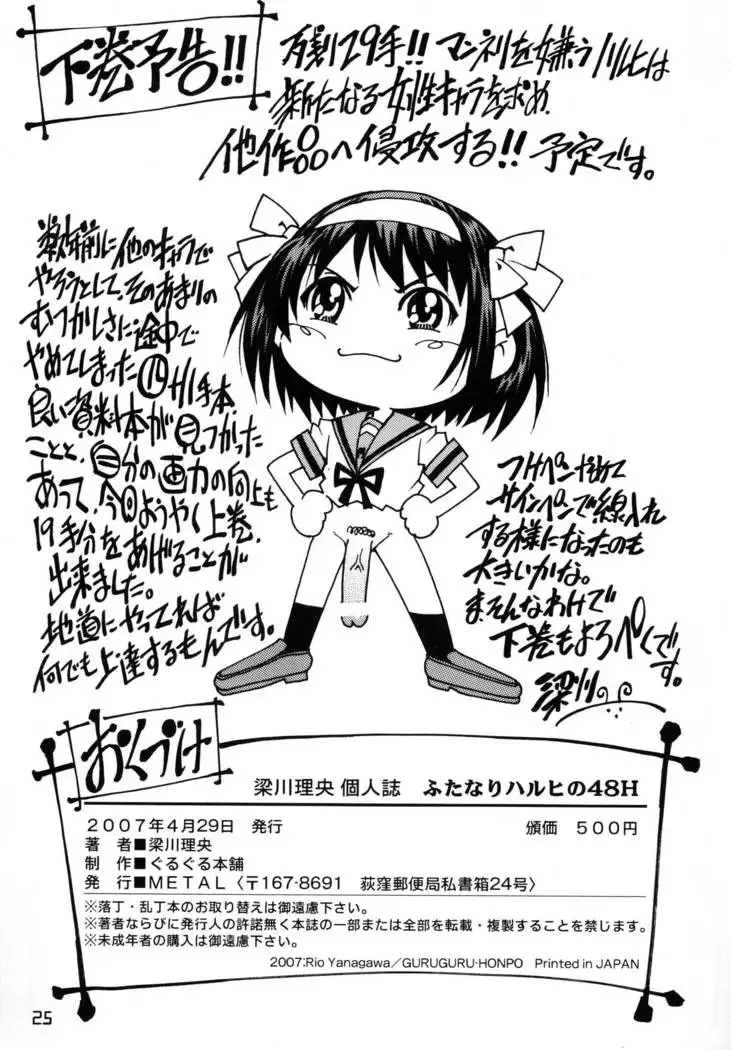 下巻予告!!
マンネリを嫌うハルヒは
新たなる女性キャラを求め
他作品へ侵攻する!! 予定です。
数年前に他のキャラで
やろうとして、そのあまりの
むつかしさに途中で
やめてしまった
良い資料本が見つかった
ことと、自分の画力の向上も
あって、今回ようやく上巻、
19手分をあげることが
出来ました。
地道にやってれば
何でも上達するもんです。
つけペンやめて
サインペンで線入れ
する様になったのも
大きいかな。
ま、そんなわけで
下巻もよろぺくです。
梁川
おくづけ
梁川理央 個人誌 ふたなりハルヒの48H
2007年4月29日 発行 頒価 500円
著 者■梁川理央
制 作■ぐるぐる本舗
発 行■METAL〈〒167-8691 荻窪郵便局私書箱24号〉
※落丁・乱丁本のお取り替えは御遠慮下さい。
※著者ならびに発行人の許諾無く本誌の一部または全部を転載・複製することを禁じます。
※未成年者の購入は御遠慮下さい。
2007:Rio Yanagawa/GURUGURU-HONPO Printed in JAPAN
25